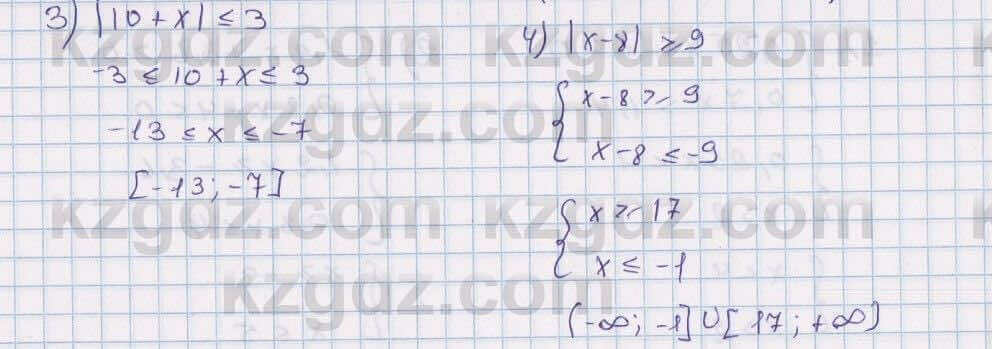 3) |10 + x| ≤ 3
-3 ≤ 10 + x ≤ 3
-13 ≤ x ≤ -7
[-13; -7]
4) |x-8| ≥ 9
{ x-8 ≥ 9
x-8 ≤ -9
{ x ≥ 17
x ≤ -1
(-∞; -1] ∪ [17; +∞)
kzgdz.com
kzgdz.com
kzgdz.com
kzgdz.com
kzgdz.com
kzgdz.com